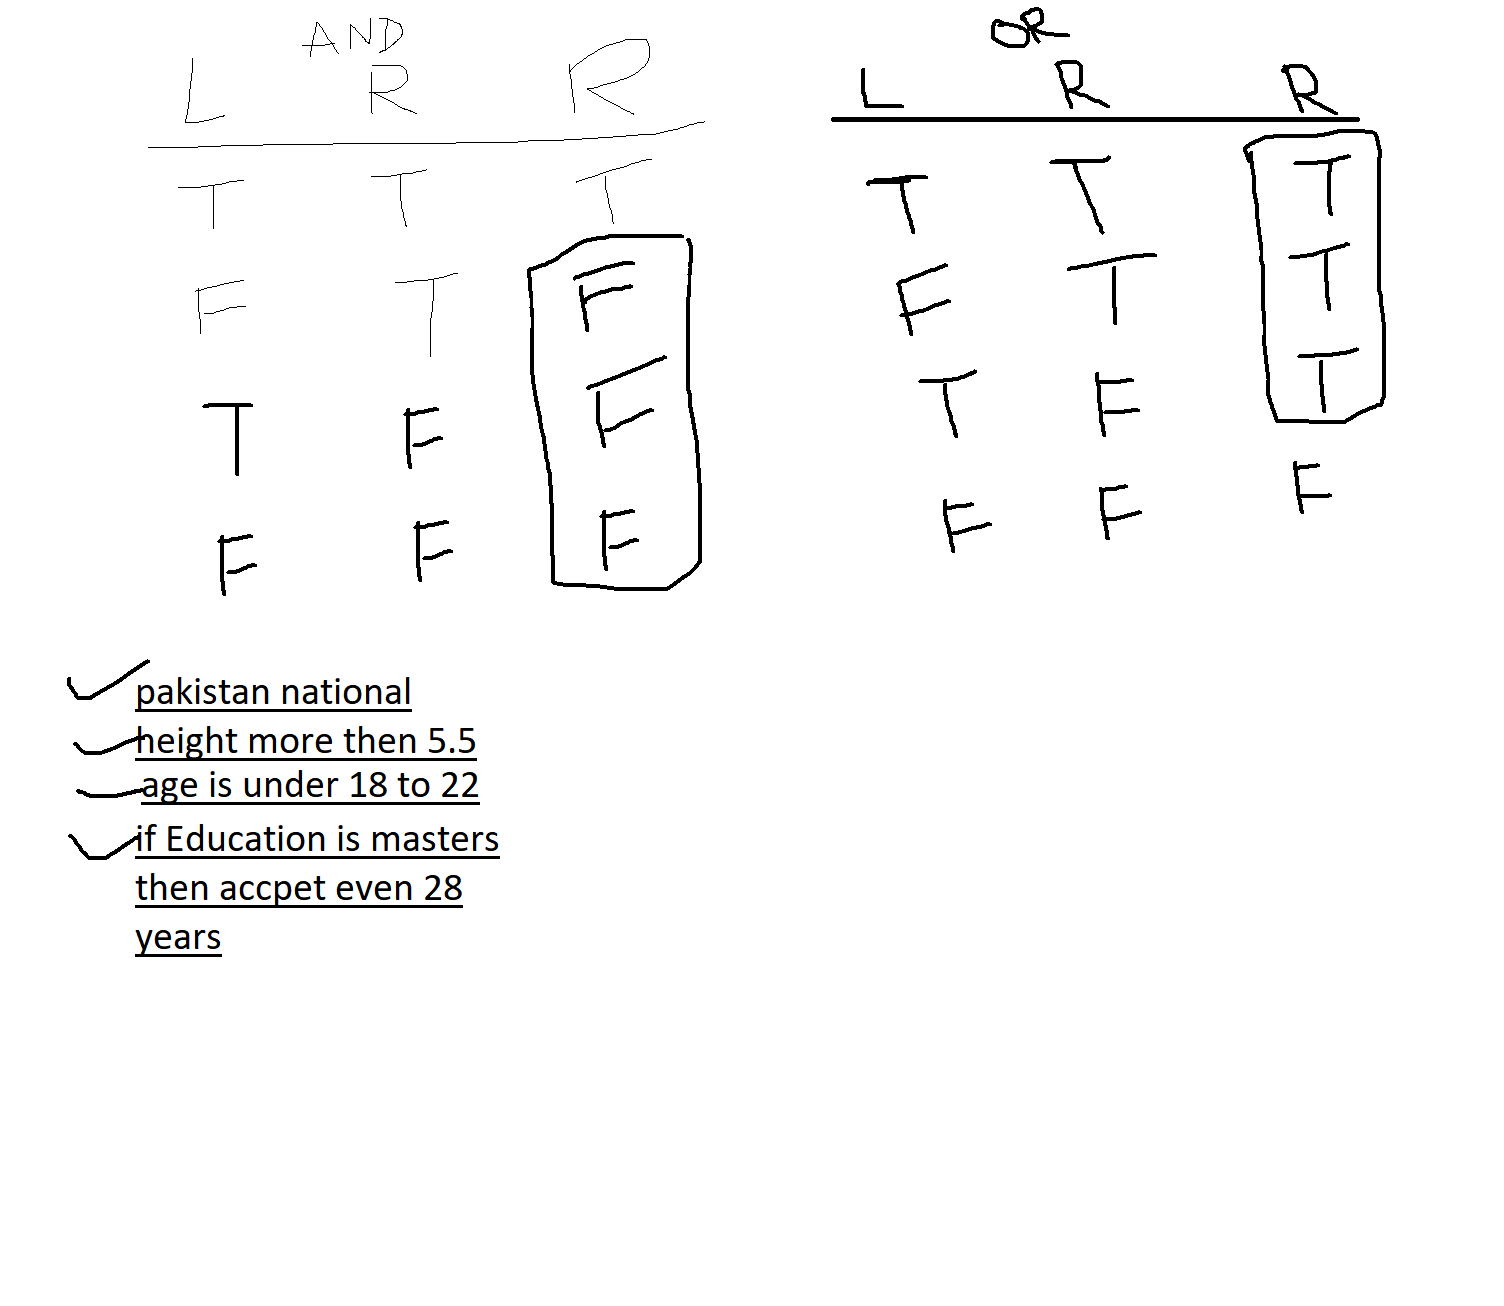 AND
L R R
T T T
F T F
T F F
F F F
OR
L R R
T T T
F T T
T F T
F F F
pakistan national
height more then 5.5
age is under 18 to 22
if Education is masters
then accpet even 28
years